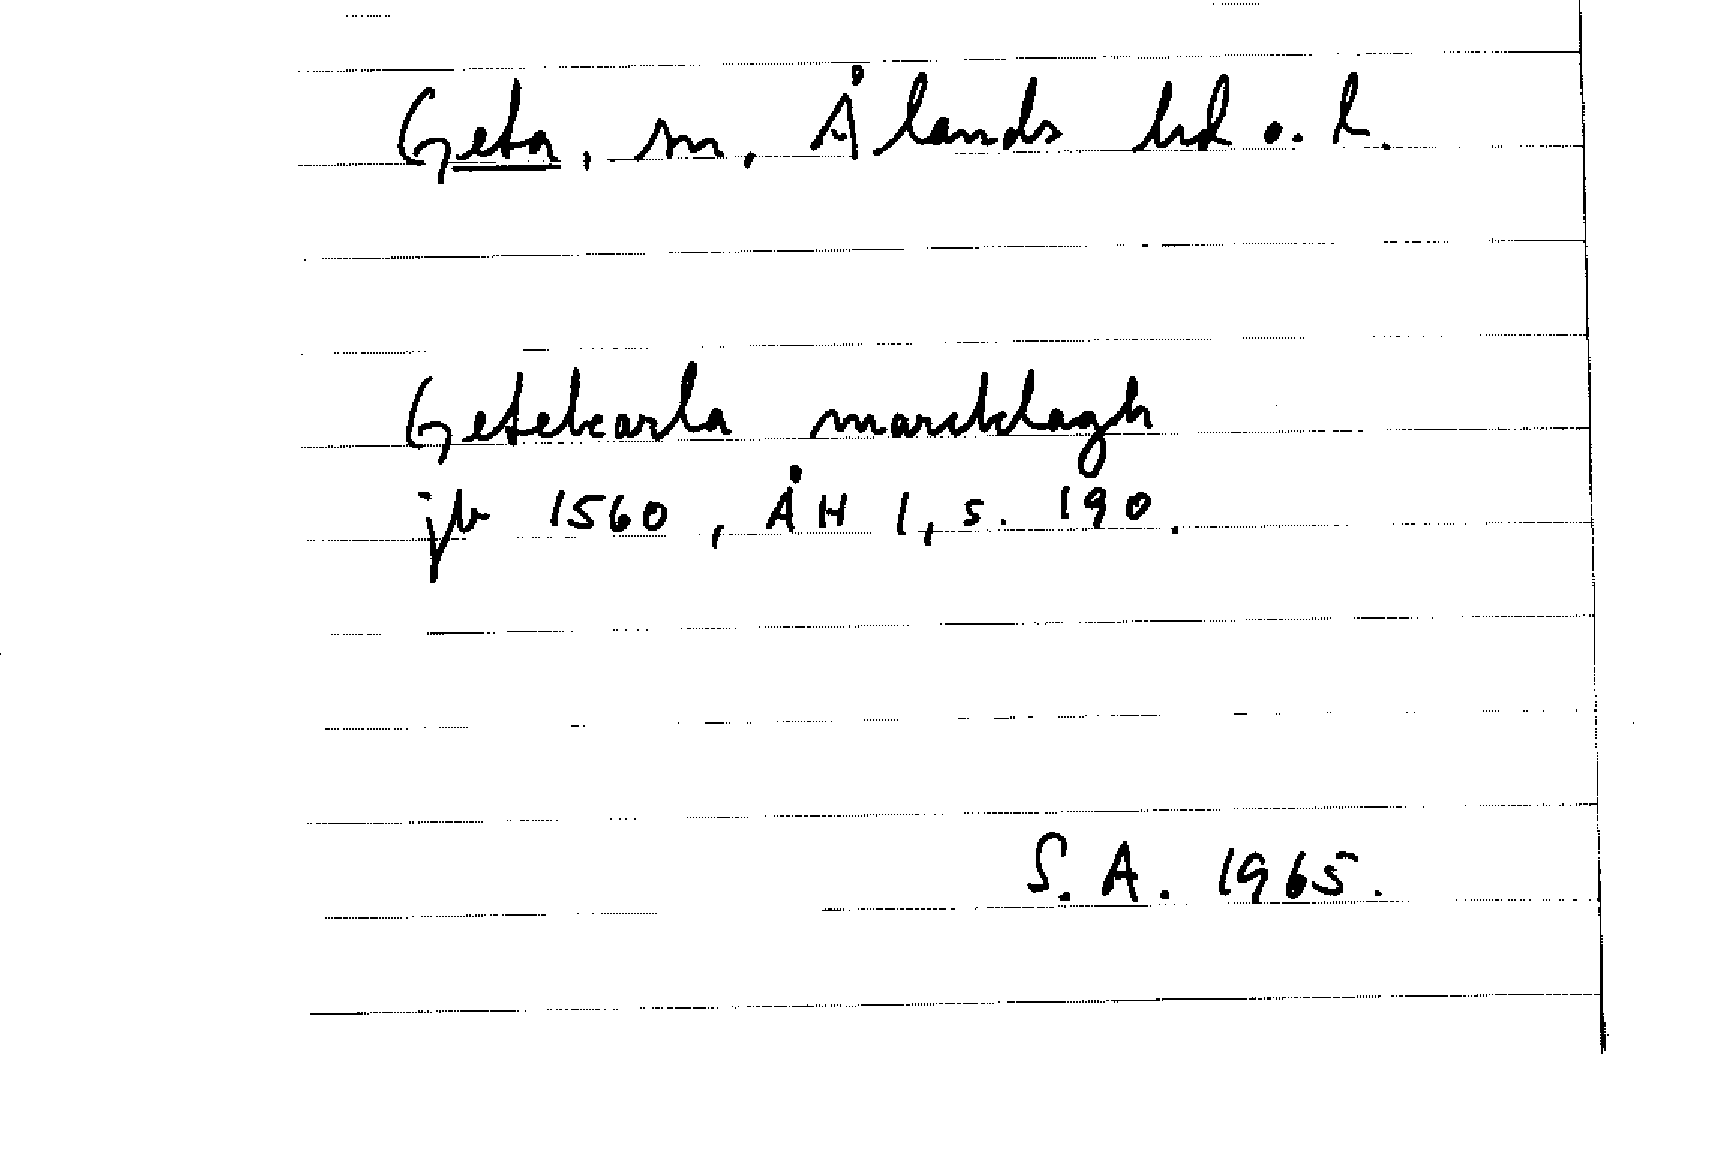 Geta, sn, Ålands hd o. l.
Getekarla marcklagh
jb 1560, ÅH 1, s. 190.
S. A. 1965.